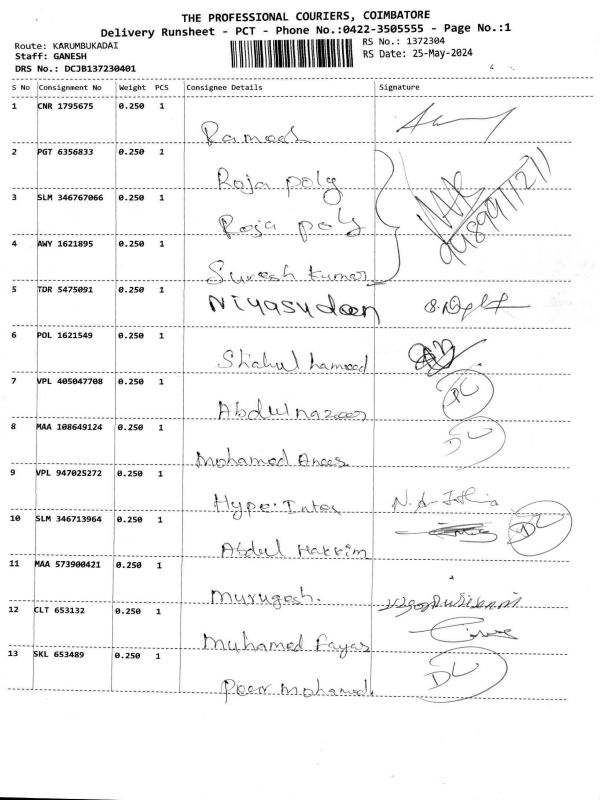 THE PROFESSIONAL COURIERS, COIMBATORE
Delivery Runsheet - PCT - Phone No.:0422-3505555 - Page No.:1
Route: KARUMBUKADAI
Staff: GANESH
DRS No.: DCJB137230401
RS No.: 1372304
RS Date: 25-May-2024
S No Consignment No Weight PCS Consignee Details Signature
1 CNR 1795675 0.250 1
Ramees
2 PGT 6356833 0.250 1
Roja poly
3 SLM 346767066 0.250 1
Roja poly
4 AWY 1621895 0.250 1
Suresh Kumar
5 TDR 5475091 0.250 1
Niyasudeen
6 POL 1621549 0.250 1
Shahul hameed
7 VPL 405047708 0.250 1
Abdul nazeer DL
8 MAA 108649124 0.250 1
Mohamed Anees DL
9 VPL 947025272 0.250 1
Hype. Inter
10 SLM 346713964 0.250 1
Abdul Hakkim DL
11 MAA 573900421 0.250 1
Murugesh.
12 CLT 653132 0.250 1
Muhamed Fayas
13 SKL 653489 0.250 1
Peer mohamed. DL